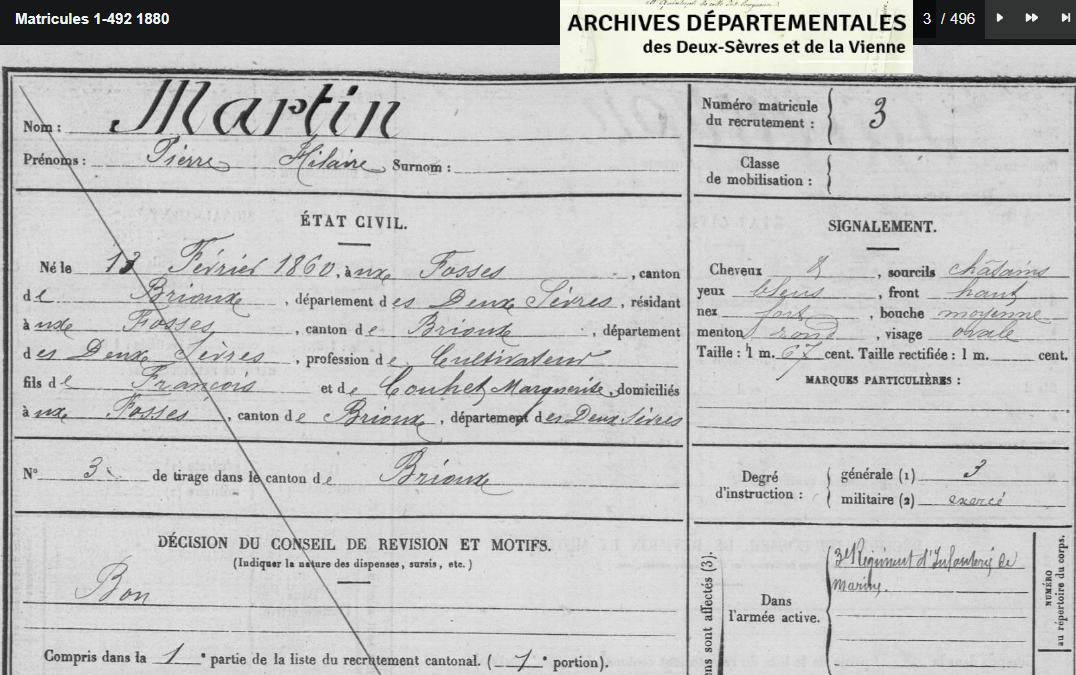 Matricules 1-492 1880
ARCHIVES DÉPARTEMENTALES
des Deux-Sèvres et de la Vienne
3 / 496
Nom : Martin
Prénoms : Pierre Hilaire Surnom :
Numéro matricule du recrutement : 3
Classe de mobilisation :
ÉTAT CIVIL.
Né le 13 Février 1860, à uxe Fosses, canton
de Brioux, département des Deux Sèvres, résidant
à uxe Fosses, canton de Brioux, département
des Deux Sèvres, profession de Cultivateur
fils de François et de Couhet Marguerite, domiciliés
à uxe Fosses, canton de Brioux, département des Deux Sèvres
SIGNALEMENT.
Cheveux &, sourcils châtains
yeux bleus, front haut
nez fort, bouche moyenne
menton rond, visage ovale
Taille : 1 m. 67 cent. Taille rectifiée : 1 m. cent.
MARQUES PARTICULIÈRES :
N° 3 de tirage dans le canton de Brioux
Degré d'instruction :
générale (1) 3
militaire (2) exercé
DÉCISION DU CONSEIL DE REVISION ET MOTIFS.
(Indiquer la nature des dispenses, sursis, etc.)
Bon
Compris dans la 1e partie de la liste du recrutement cantonal. ( 1e portion).
ens sont affectés (3).
Dans l'armée active.
3e Régiment d'Infanterie de
Marine.
NUMÉRO
au répertoire du corps.